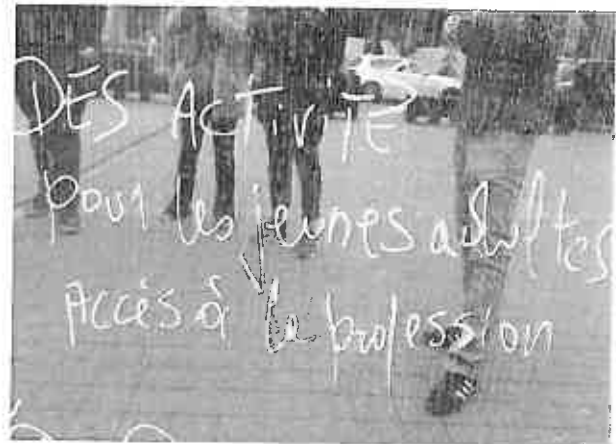 DES ACTIVITE
pour les jeunes adultes
Accès à la profession